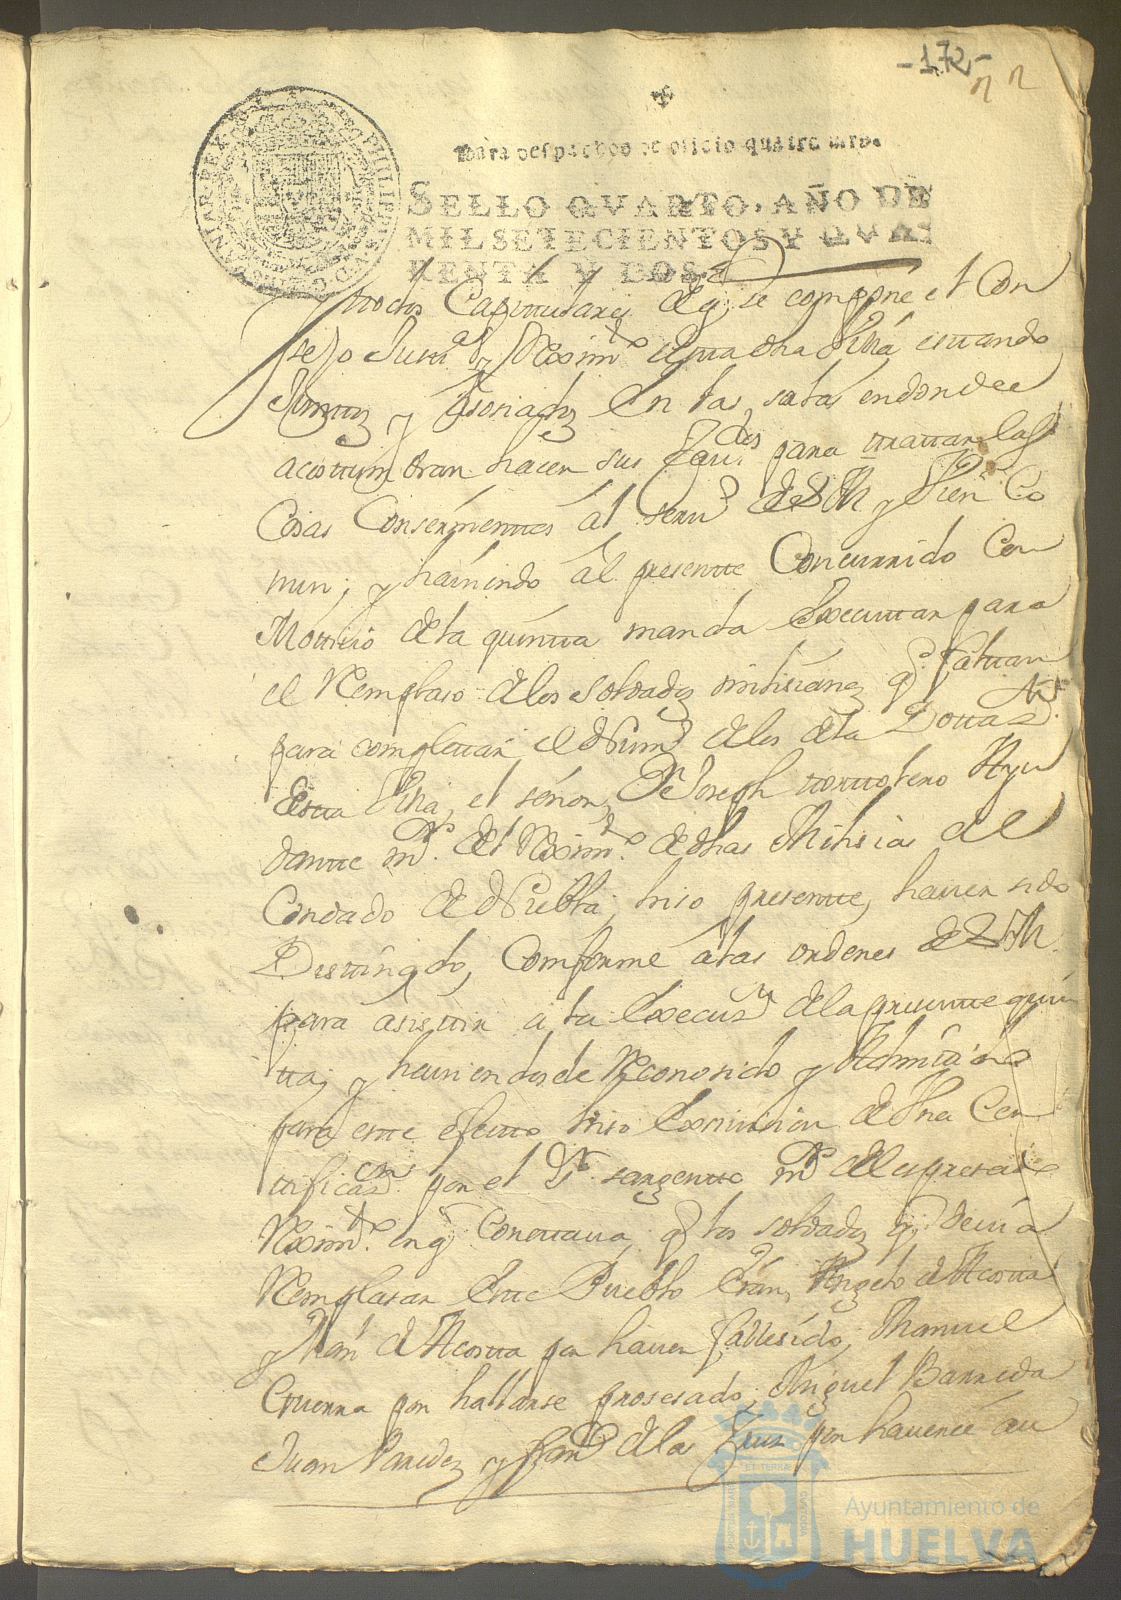 -172-
22
Para despachos de oficio quatro mrs.
SELLO QVARTO, AÑO DE
MIL SETECIENTOS Y QVA-
RENTA Y DOS.
PHILIPPUS V D G
HISPANIAR REX
todos Capitulares de q se compone el Con
sejo Justa y Reximto de esta dha Villa estando
Juntos y Asosiados en las salas en donde
acostumbran hacer sus para trattar las
Cosas Consernientes al serv.o de S M y vien Co
mun; y haviendo al presente Concurrido Con
Mottivo de la quintta manda Executtar para
el Remplaso de los soldados milisianos q faltan
para completar el Num.o de los de la Dottaz.n
Esta Villa, el señor, Dn Joseph monttotero Ayu
dantte mr. del Reximto. de dhas Milisias del
Condado de Niebla, hiso presentte, haver sido
Desttinado, Comforme a las ordenes de S M
para asisttir a la Execuz.n de la presentte quin
tta; y haviendosele Reconosido y Admitido
para estte efectto hiso Exsivision de Una Cer
ttificaz.on por el Sr. sargentto mr. del espresado
Reximto. en q Consttava, q los soldados q devia
Remplasar Estte Pueblo Eran, Angelo de Acostta
y Juan de Acostta por haver fallesido, Manuel
Guerra por hallarse prosesado, Miguel Barreda
Juan Paredes y Fran.co de la Cruz por haverce au
Ayuntamiento de
HUELVA